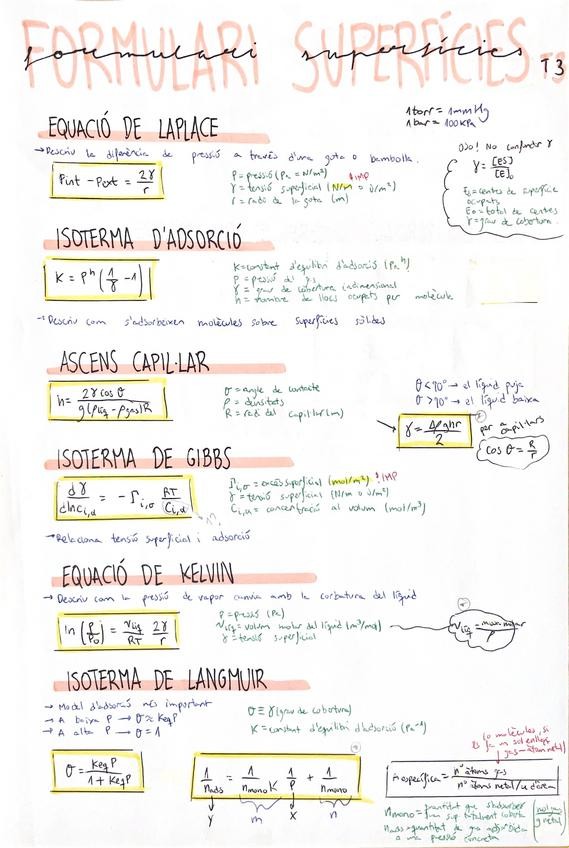 FORMULARI SUPERFÍCIES
formulari superfícies T3
1 torr = 1mmHg
1 bar = 100KPa
EQUACIÓ DE LAPLACE
→ Descriu la diferència de pressió a través d'una gota o bombolla.
Pint - Pext = 2γ/r
P = pressió (Pa = N/m²)
! IMP
γ = tensió superficial (N/m = J/m²)
r = radi de la gota (m)
OJO! No confundir γ
γ = [ES]/[E]₀
Es = centes de superfície
ocupats
E₀ = total de centres
γ = grau de cobertura.
ISOTERMA D'ADSORCIÓ
K = Pʰ (1/γ - 1)
K = constant d'equilibri d'adsorció (Paʰ)
P = pressió del gas
γ = grau de cobertura inadimensional
h = nombre de llocs ocupats per molècula
→ Descriu com s'adsorbeixen molècules sobre superfícies sòlides
ASCENS CAPIL·LAR
h = 2γ cos θ / g(ρliq - ρgas)R
θ = angle de contacte
ρ = densitats
R = radi del capil·lar (m)
θ < 90° → el líquid puja
θ > 90° → el líquid baixa
γ = Δρghr/2
per a capil·lars
cos θ = R/r
ISOTERMA DE GIBBS
dγ/dlnci,α = - Γi,σ RT/Ci,α
Γi,σ = excés superficial (mol/m²) ! IMP
γ = tensió superficial (N/m o J/m²)
Ci,α = concentració al volum (mol/m³)
→ Relaciona tensió superficial i adsorció
EQUACIÓ DE KELVIN
→ Descriu com la pressió de vapor canvia amb la corbatura del líquid
ln (P/P₀) = Vliq/RT 2γ/r
P = pressió (Pa)
Vliq = volum molar del líquid (m³/mol)
γ = tensió superficial
Vliq = massa molar/ρ
ISOTERMA DE LANGMUIR
→ Model d'adsorció més important
→ A baixa P → θ ≈ KeqP
→ A alta P → θ = 1
θ ≡ γ (grau de cobertura)
K = constant d'equilibri d'adsorció (Pa⁻¹)
θ = KeqP / 1 + KeqP
1/nads = 1/nmono K 1/P + 1/nmono
y m x n
(o molècules, si
gas-àtom metall)
n específica = nº àtoms gas / nº àtoms metall/u d'àrea
nmono = quantitat que s'adsorbeix
(mol gas/g metall)
nads = quantitat de gas adsorbida
a una pressió concreta